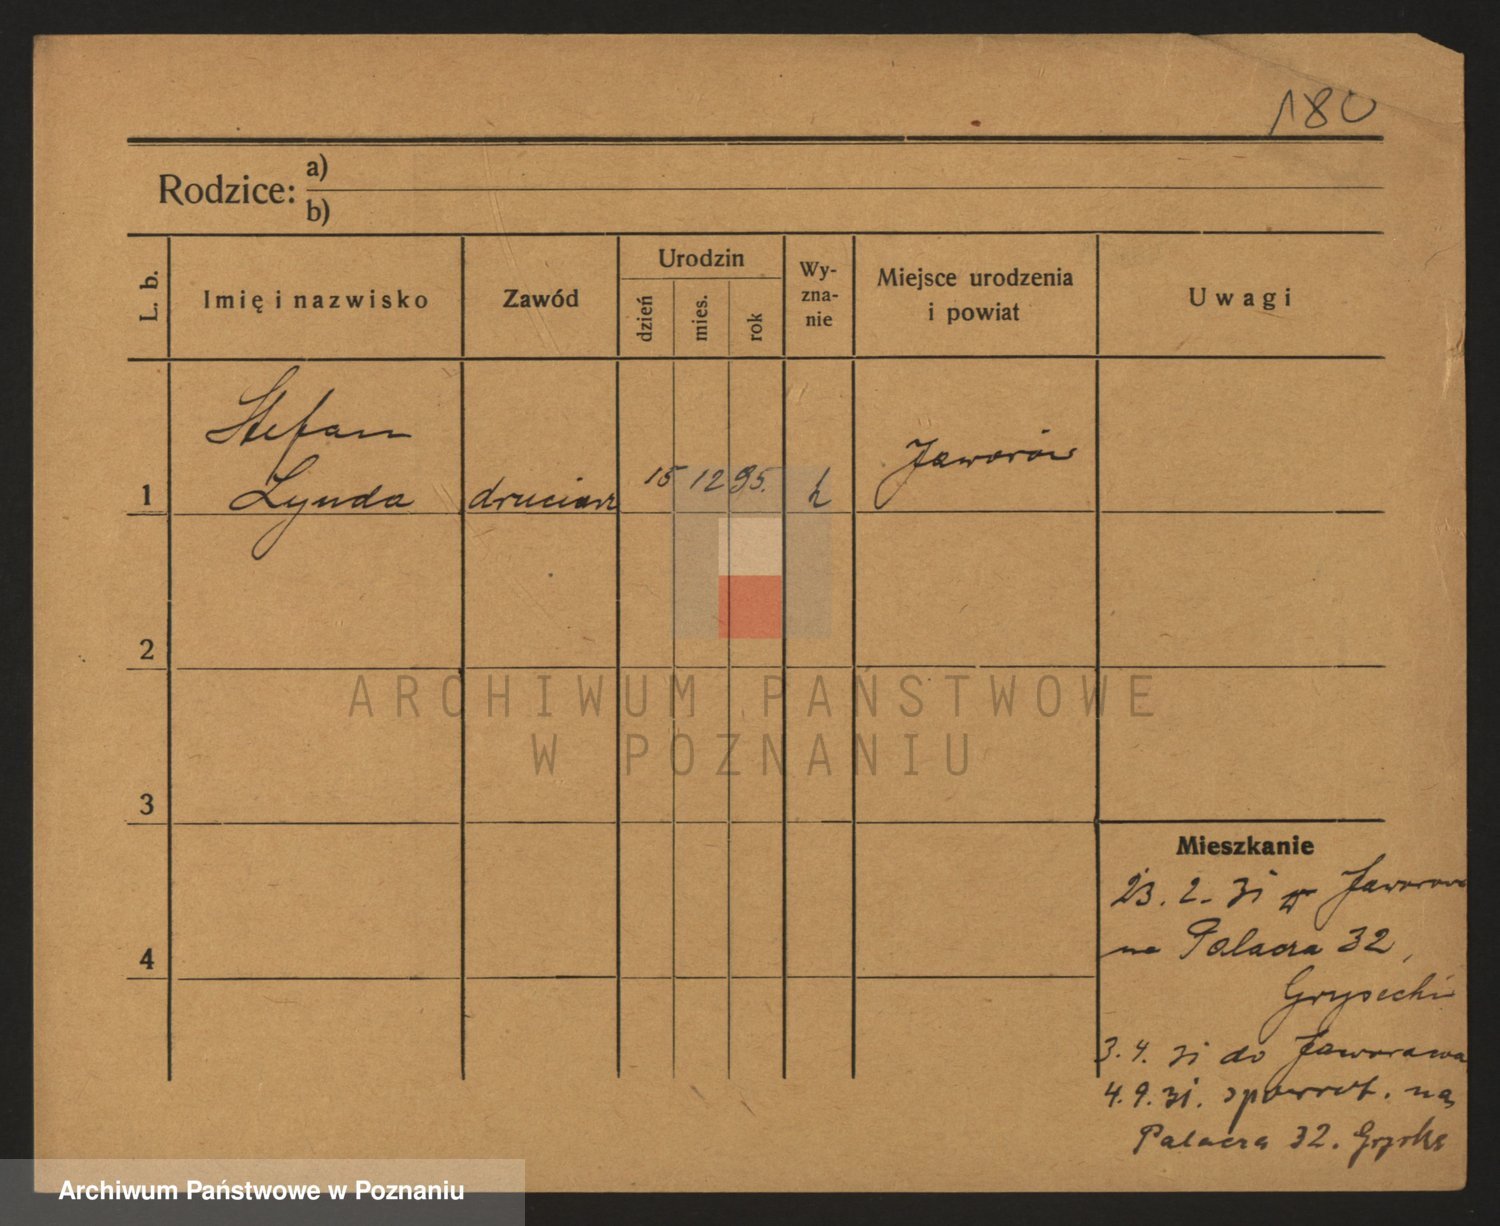 180
Rodzice: a)
b)
L. b.
Imię i nazwisko
Zawód
Urodzin
dzień
mies.
rok
Wy-
zna-
nie
Miejsce urodzenia
i powiat
Uwagi
Stefan
1 Lynda druciarz 15 12 95. Jaworów
2
3
4
Mieszkanie
23. 2. 31 w Jaworowa
na Palacza 32,
3. 4. 31 do Jaworowa
4. 9. 31. spowrot. na
Palacza 32.
ARCHIWUM PAŃSTWOWE
W POZNANIU
Archiwum Państwowe w Poznaniu